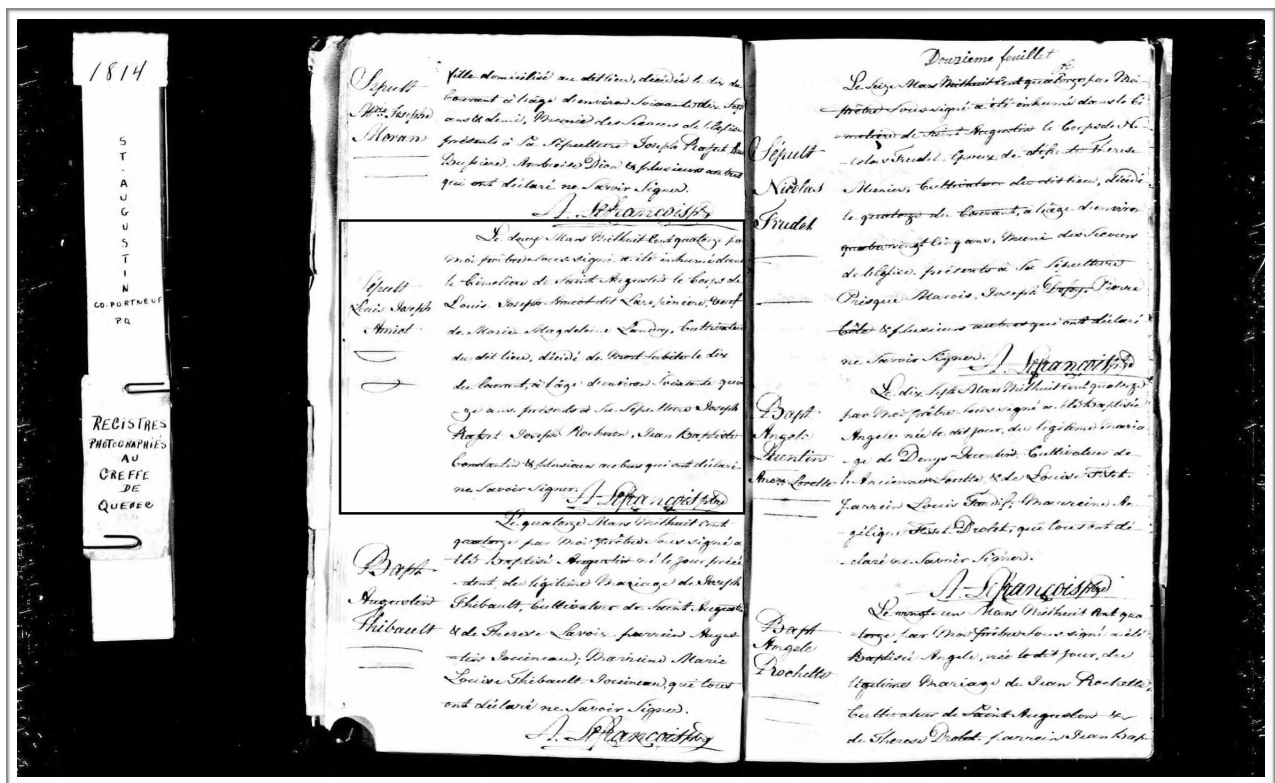 1814
ST-AUGUSTIN
CO. PORTNEUF
P.Q
REGISTRES
PHOTOGRAPHIÉS
AU
GREFFE
DE
QUEBEC
Sepult
Mie Josephe
Moran
fille domiciliée au dit lieu, décédée le dix du
Courant à l'âge d'environ Soixante dix Sept
ans & demi, Munie des Secours de l'Eglise.
présents à Sa Sépulture Joseph Rafort
Bussiere, Ambroise Dion & plusieurs autres
qui ont déclaré ne Savoir Signer.
A. Lefrançois ptre
Sépult
Louis Joseph
Amiot
Le douze Mars Mil huit Cent quatorze par
moi prêtre Sous signé a été inhumé dans
le Cimetiere de Saint Augustin le Corps de
Louis Joseph Amiot dit Larpiniere, veuf
de Marie Magdeleine Landry, Cultivateur
du dit lieu, décédé de Mort Subite le dix
du Courant, à l'âge d'environ Soixante quin
ze ans. présents à Sa Sépulture Joseph
Rafort Joseph Rocheron, Jean Baptiste
Constantin & plusieurs autres qui ont déclaré
ne Savoir Signer.
A. Lefrançois ptre
Bapt
Augustin
Thibault
Le quatorze Mars Mil huit Cent
quatorze par Moi prêtre Sous signé a
été Baptisé Augustin né le jour précé
-dent, du légitime Mariage de Joseph
Thibault, Cultivateur de Saint Augustin
& de Therese Lavoix. parrein Augus
-tin Jouineau; Marreine Marie
Louise Thibault Jouineau, que tous
ont déclaré ne Savoir Signer.
A. Lefrançois ptre
Douzieme feuillet
Sépult
Nicolas
Trudel
Le Seize Mars Mil huit Cent quatorze par Moi
prêtre Sous signé a été inhumé dans le Ci
-metiere de Saint Augustin le Corps de Ni
-colas Trudel Epoux de Therese
Meunier, Cultivateur du dit lieu, décédé
le quatorze du Courant, à l'âge d'environ
quatrevingt Cinq ans, Muni des Secours
de l'Eglise. présents à Sa Sépulture
Prisque Marois, Joseph Pierre
Côté & plusieurs autres qui ont déclaré
ne Savoir Signer.
A. Lefrançois ptre
Bapt
Angele
Anc. Lorette
Le dix Sept Mars Mil huit Cent quatorze
par Moi prêtre Sous signé a été Baptisée
Angele née le dit jour, du légitime maria
-ge de Denys Cultivateur de
l'Ancienne Lorette & de Louise Fiset.
parrein Louis Tardif; Marreine An
-gélique Fiset Drolet, que tous ont dé
-claré ne Savoir Signer.
A. Lefrançois ptre
Bapt
Angele
Rochette
Le vingt un Mars Mil huit Cent qua
-torze par Moi prêtre Sous signé a été
Baptisée Angele, née le dit jour, du
légitime Mariage de Jean Rochette,
Cultivateur de Saint Augustin &
de Therese Drolet. parrein Jean Bap